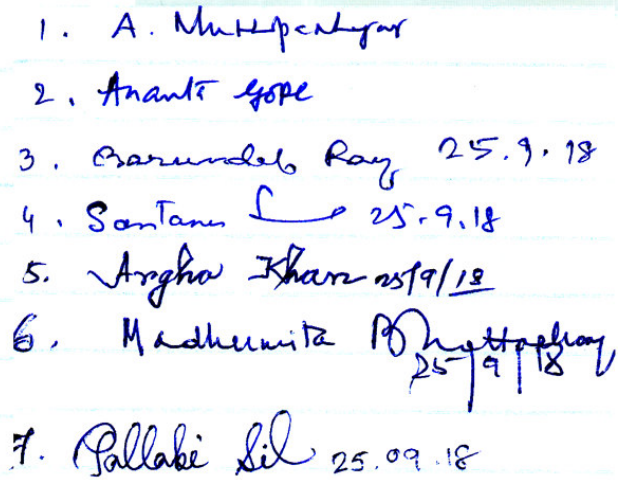 1. A.
2. Ananta Gope
3. Barundeb Ray 25.9.18
4. Santanu 25.9.18
5. Argha Khan 25/9/18
6. Madhumita Bhattacharya 25/9/18
7. Pallabi Sil 25.09.18